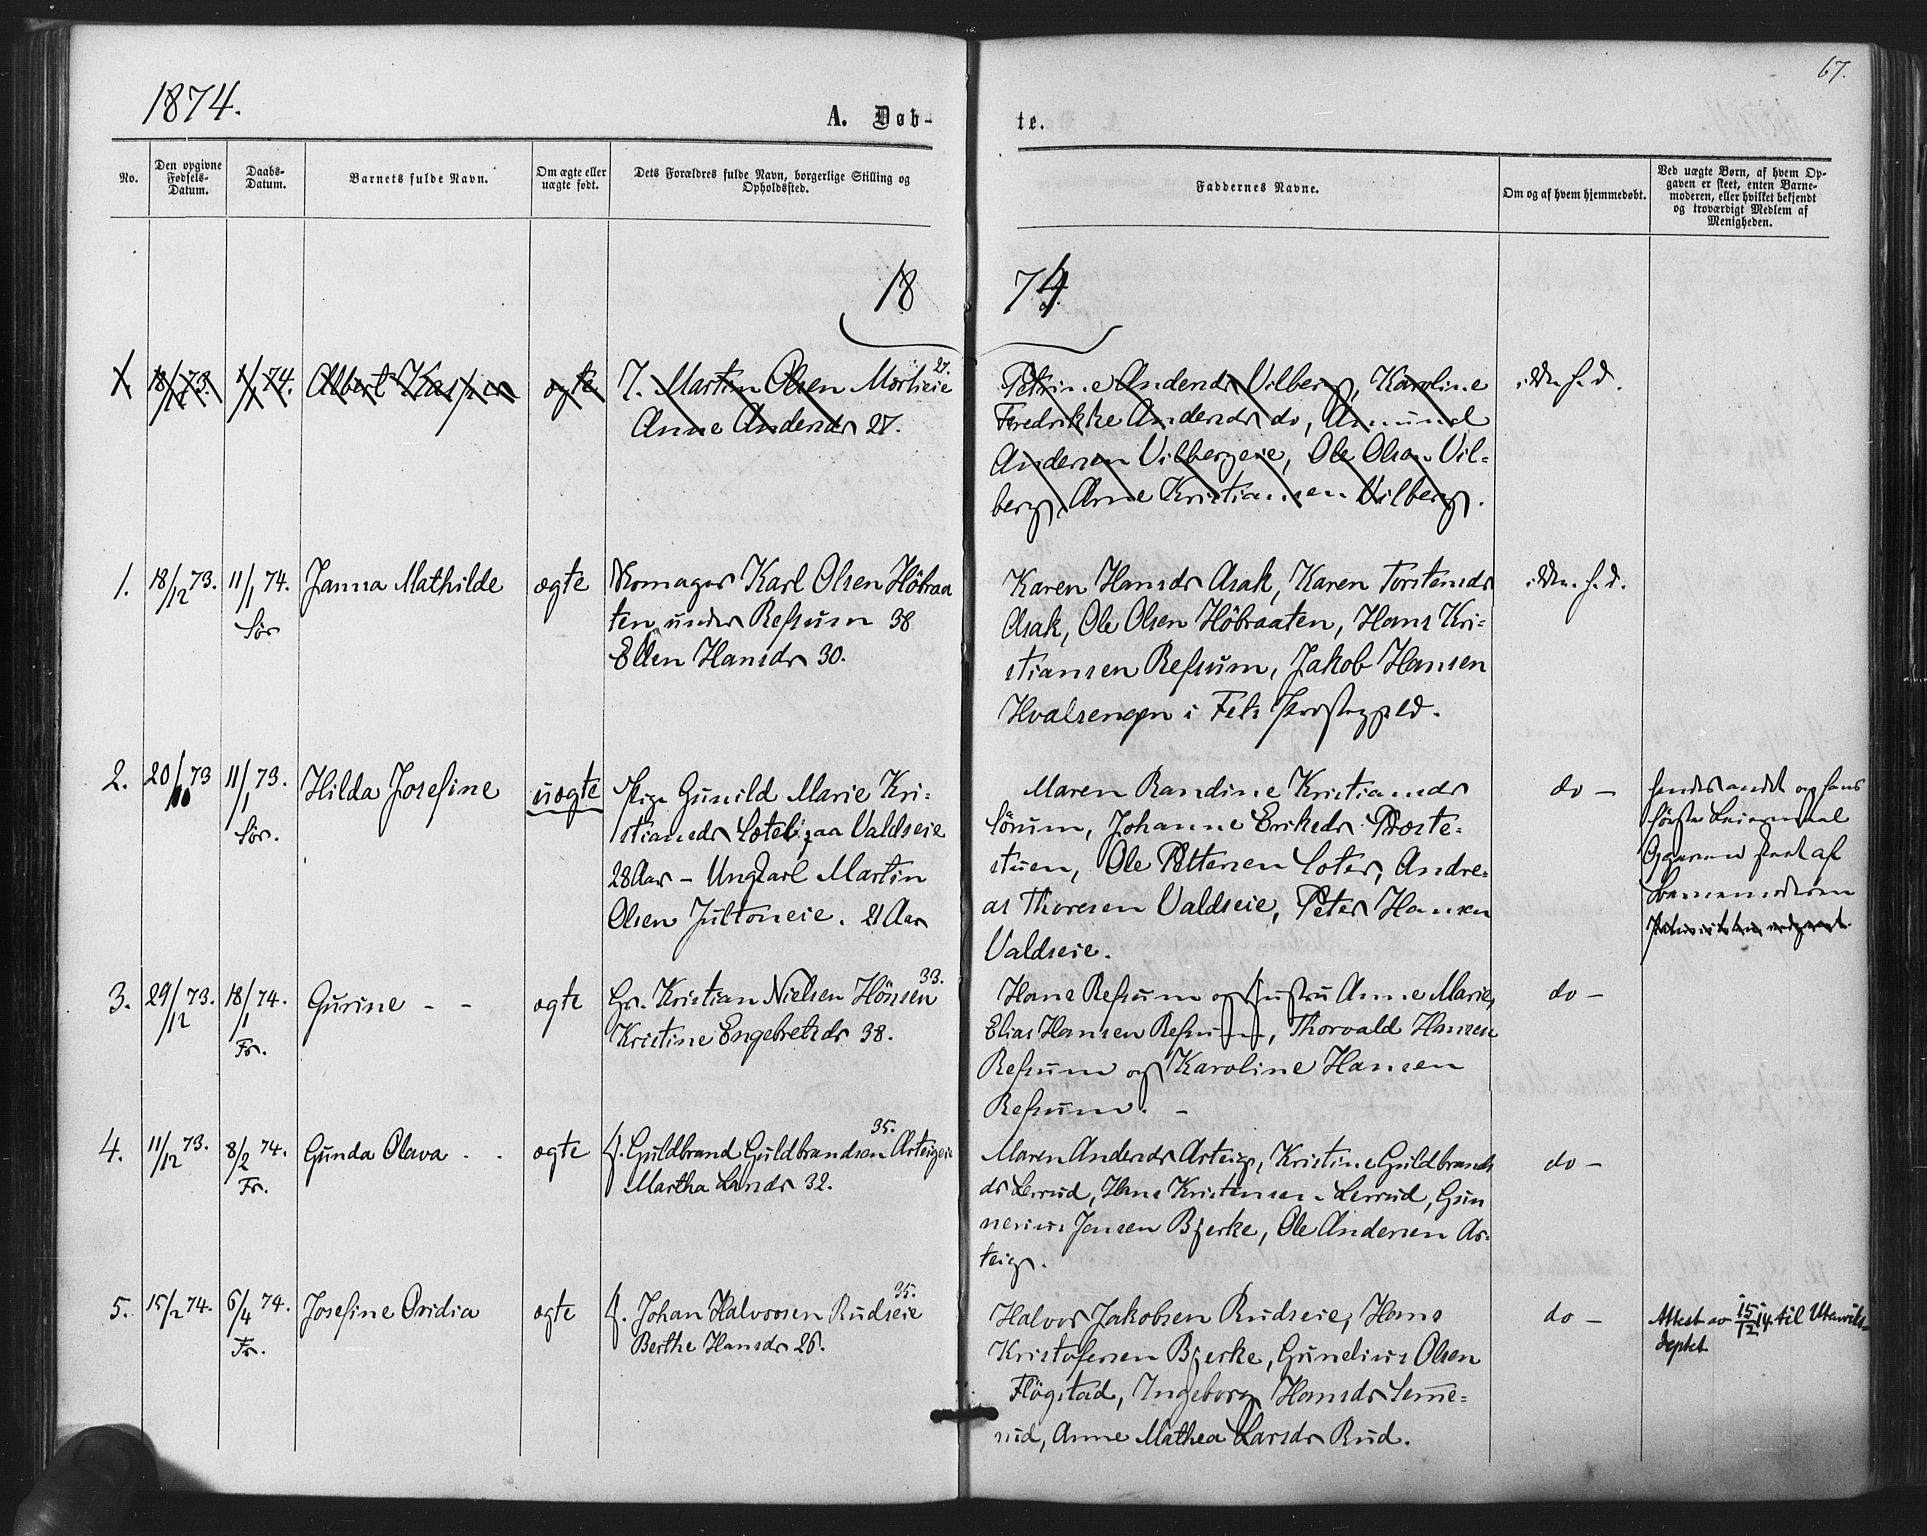 1874.
67.
A. Døb-
te.
No.
Den opgivne
Fødsels-
Datum.
Daabs-
Datum.
Barnets fulde Navn.
Om ægte eller
uægte født.
Dets Forældres fulde Navn, borgerlige Stilling og
Opholdssted.
Faddernes Navne.
Om og af hvem hjemmedøbt.
Ved uægte Børn, af hvem Op-
gaven er skeet, enten Barne-
moderen, eller hvilket bekjendt
og troværdigt Medlem af
Menigheden.
18 74.
1. 18/12 73. 1/1 74. Albert Kasper ægte J. Martin Olsen Mørkeie 27.
Anne Andersdr 27.
Petrine Andersdr Vilberg, Karoline
Fredrikke Andersdr do, Amund
Andersen Vilbergeie, Ole Olsen Vil-
berg, Arne Kristiansen Vilberg.
ikke h. d.
1. 18/12 73. 11/1 74. Sør Janna Mathilde ægte
Skomager Karl Olsen Höbraa
ten under Refsum 38
Ellen Hansdr 30.
Karen Hansdr Asak, Karen Torstensdr
Asak, Ole Olsen Höbraaten, Hans Kri-
stiansen Refsum, Jakob Hansen
Hvalsengen i Fets Præstegjeld.
ikke h. d.
2. 20/10 73 11/1 73. Sør. Hilda Josefine uægte
Pige Gunild Marie Kri-
stiansdr Soteli paa Valdseie
28 Aar – Ungkarl Martin
Olsen Jultoneie. 21 Aar
Maren Randine Kristiansdr
Sörum, Johanne Eriksdr Præste-
stuen, Ole Pettersen Soter, Andre-
as Thoresen Valdseie, Peter Hansen
Valdseie.
do –
hendes andet og hans
første Leiermaal
Opgaven skeet af
Barnemoderen
3. 29/12 73. 18/1 74. Fr. Gurine – – ægte
Gr. Kristian Nielsen Hönsen 33.
Kristine Engebretsdr 38.
Hans Refsum og Hustru Anne Marie,
Elias Hansen Refsum, Thorvald Hansen
Refsum og Karoline Hansen
Refsum. –
do –
4. 11/12 73. 8/2 74. Fr. Gunda Olava . . ægte
J. Guldbrand Guldbrandsen Arteigeie 35.
Martha Larsdr 32.
Maren Andersdr Arteig, Kristine Guldbrands
dr Lerrud, Hans Kristensen Lerrud, Gun
nerius Jensen Bjerke, Ole Andersen Ar-
teig.
do –
5. 15/2 74. 6/4 74. Fr. Josefine Ovidia ægte
J. Johan Halvorsen Rudseie 35.
Berthe Hansdr 26.
Halvor Jakobsen Rudseie, Hans
Kristofersen Bjerke, Gunelius Olsen
Flögstad, Ingeborg Hansdr Seme-
rud, Anne Mathea Larsdr Rud.
do –
Attest av 15/12 14 til Utenriks-
deptet